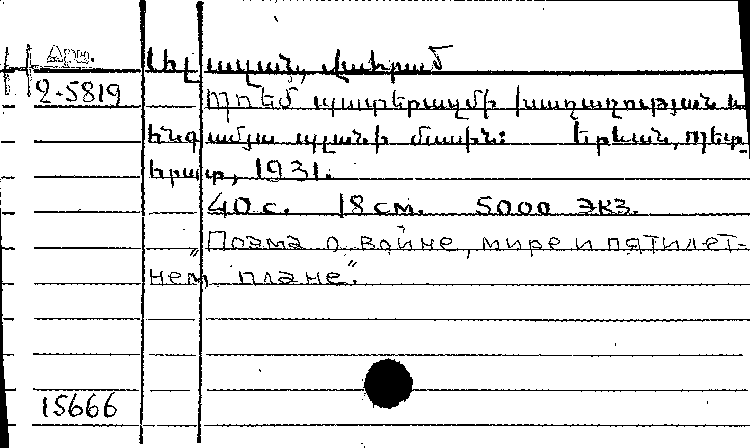 Դրա.
Ալազան, Վահրամ
2-5819
Պոեմ պատերազմի խաղաղության և
հնգամյա պլանի մասին: Երևան, Պետ-
հրատ, 1931.
40 с. 18 см. 5000 экз.
„Поэма о войне, мире и пятилет-
нем плане".
15666